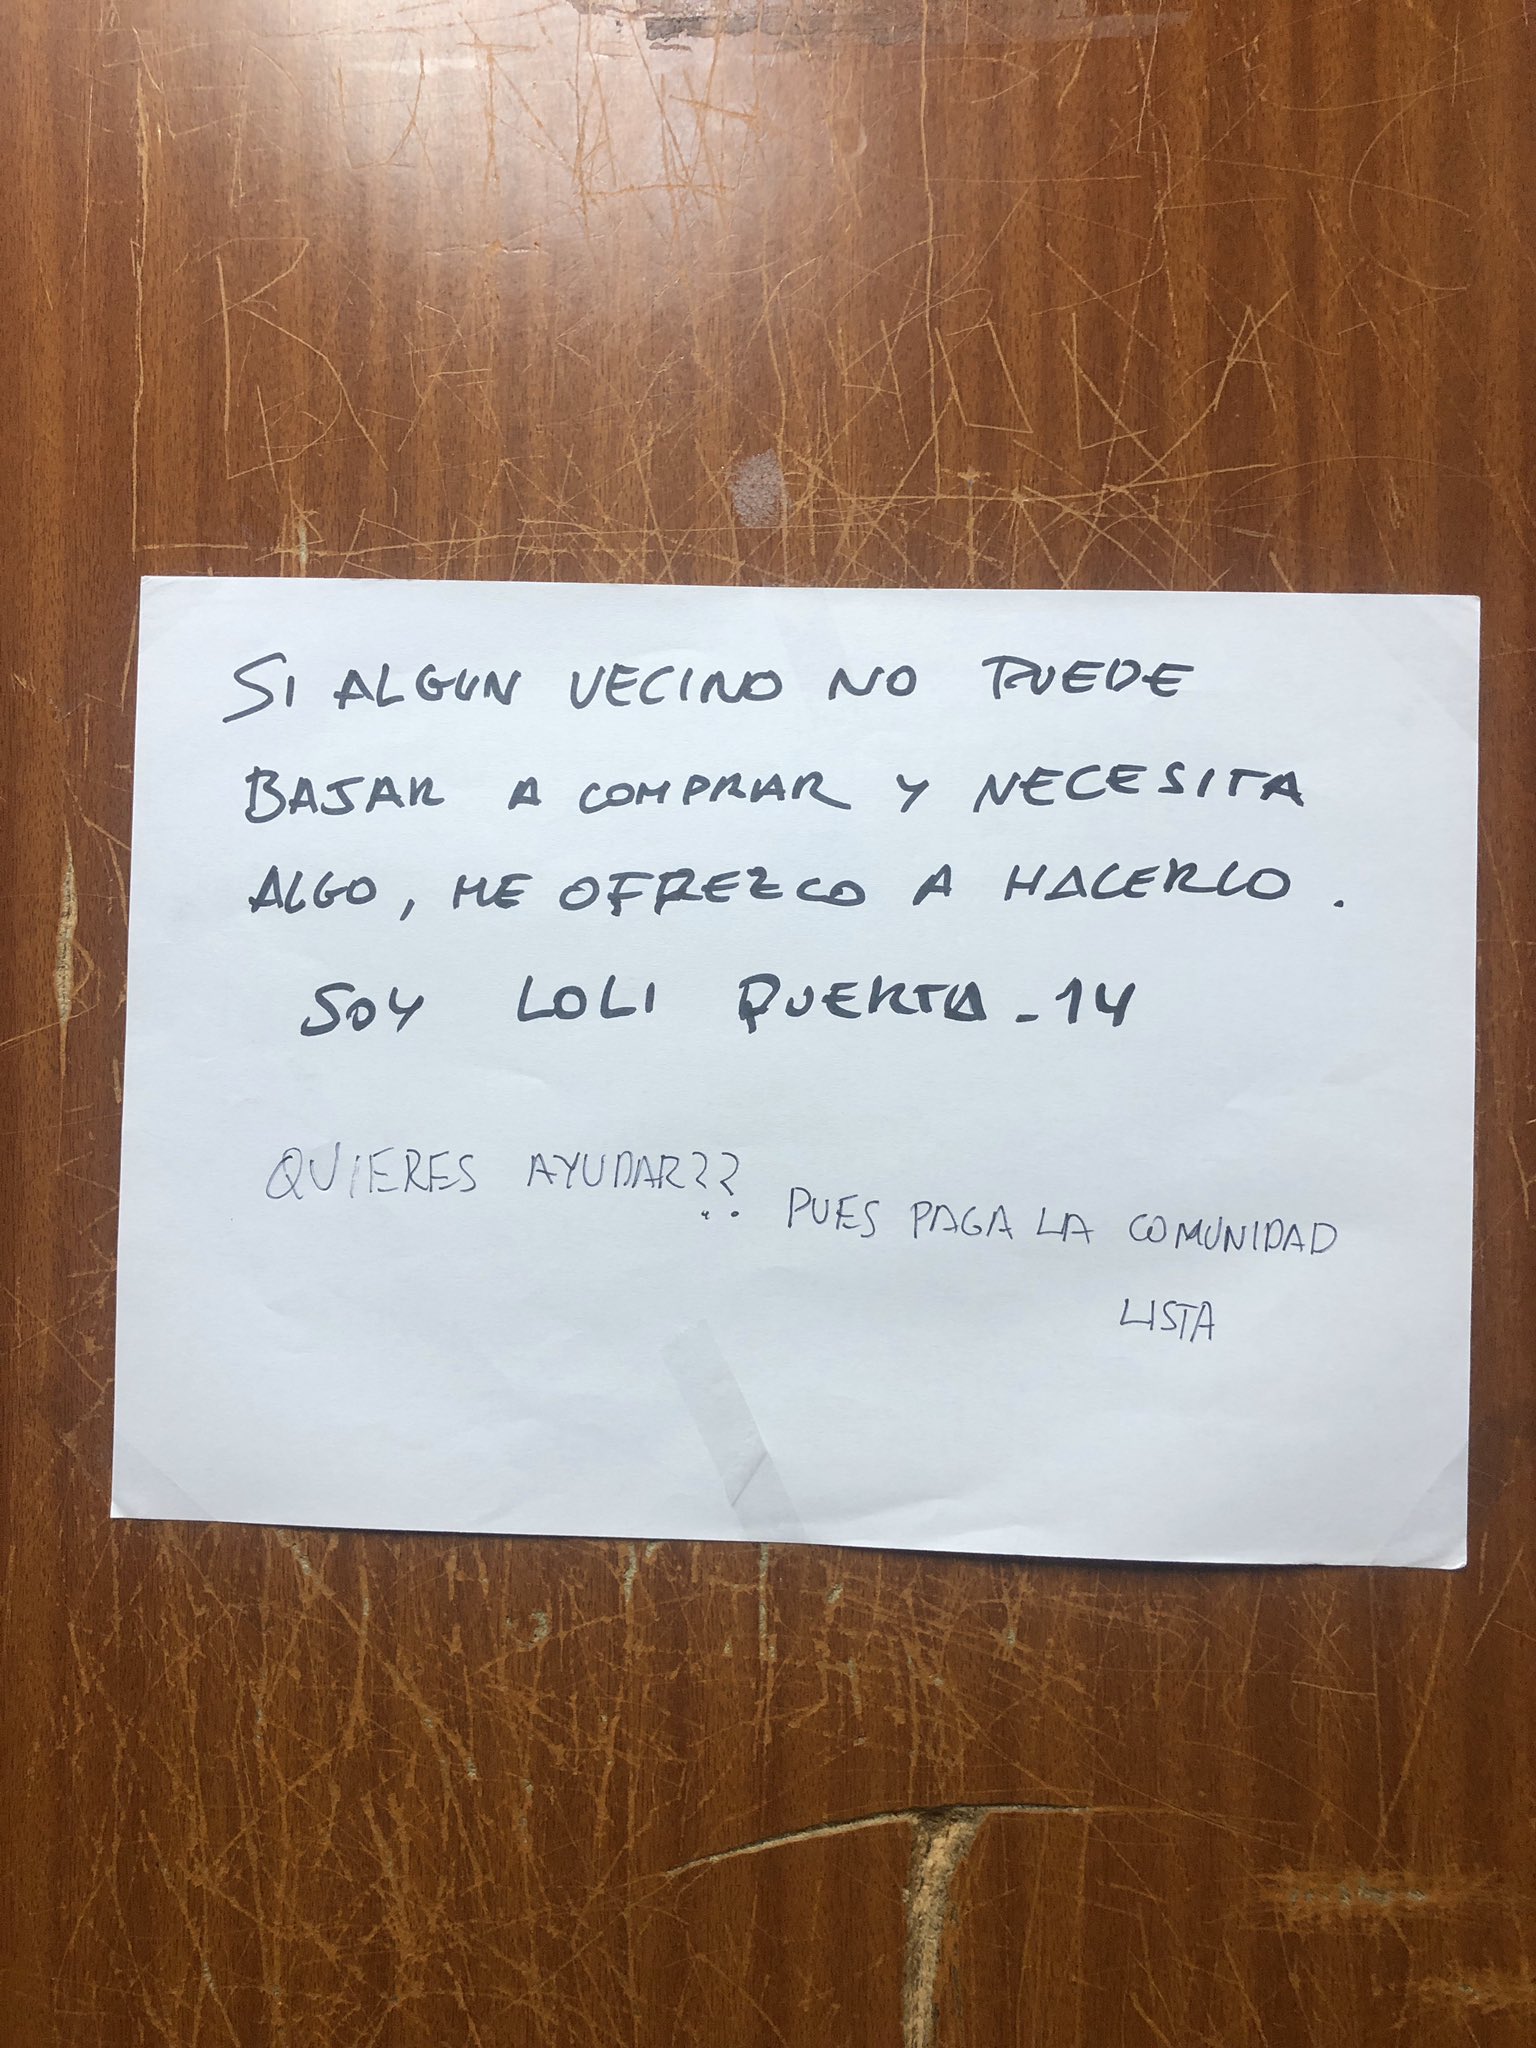 SI ALGUN VECINO NO PUEDE
BAJAR A COMPRAR Y NECESITA
ALGO, ME OFREZCO A HACERLO.
SOY LOLI PUERTA-14
QUIERES AYUDAR?? PUES PAGA LA COMUNIDAD
LISTA